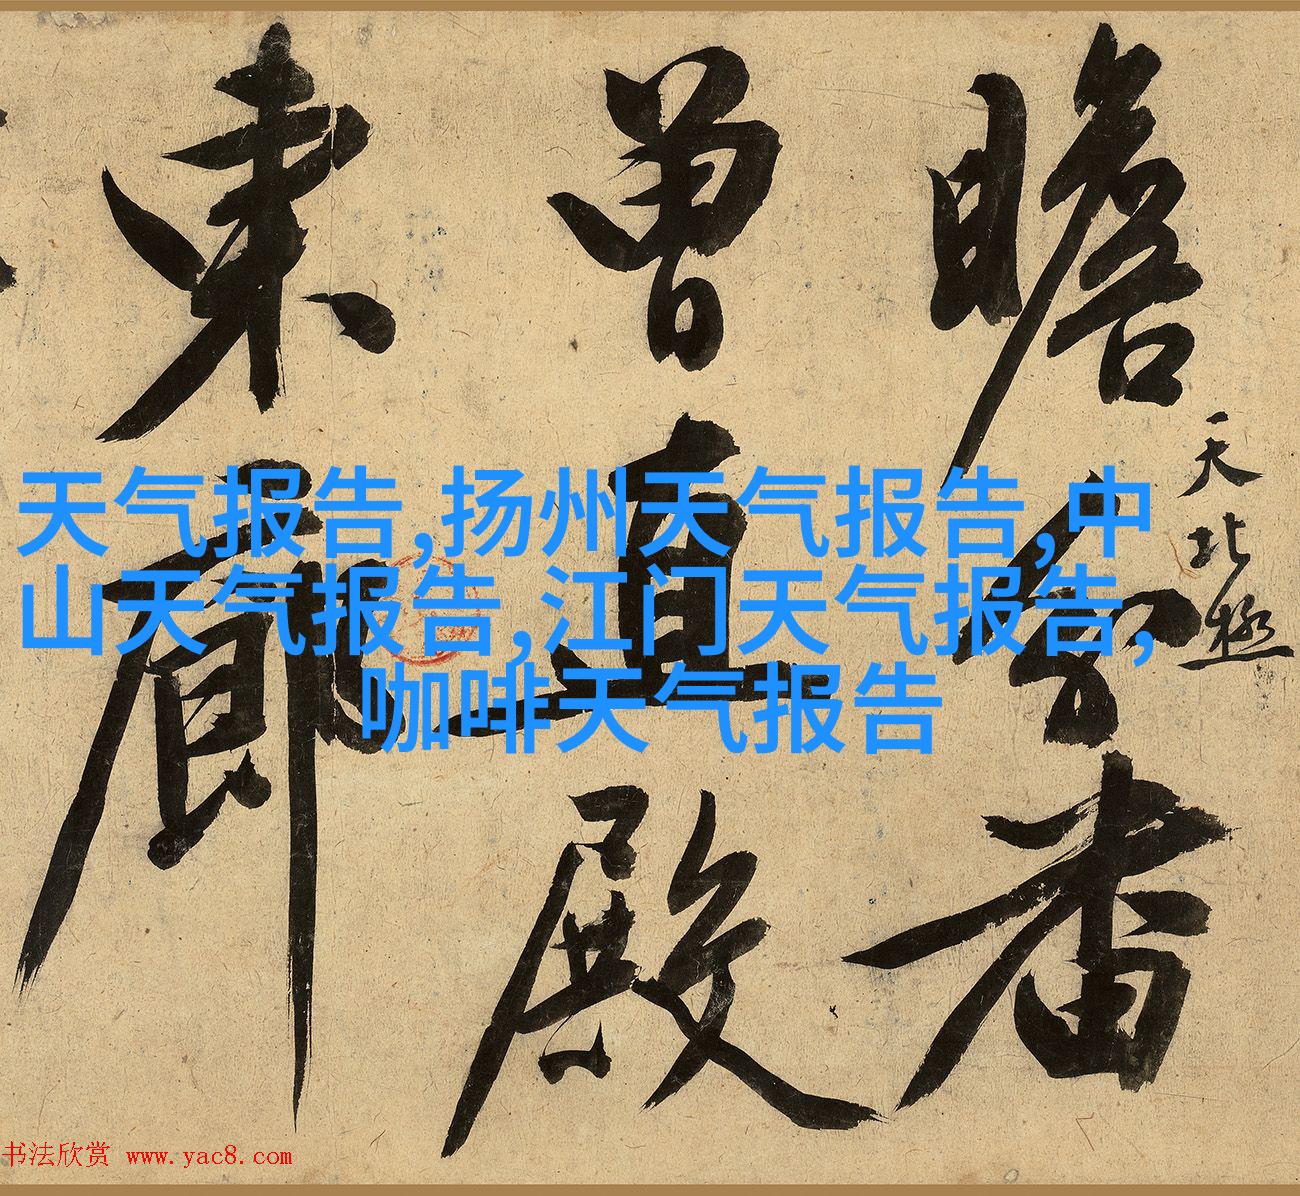 瞻
天北極
曾直殿
東廊
天气报告,扬州天气报告,中
山天气报告,江门天气报告,
咖啡天气报告
书法欣赏 www.yac8.com